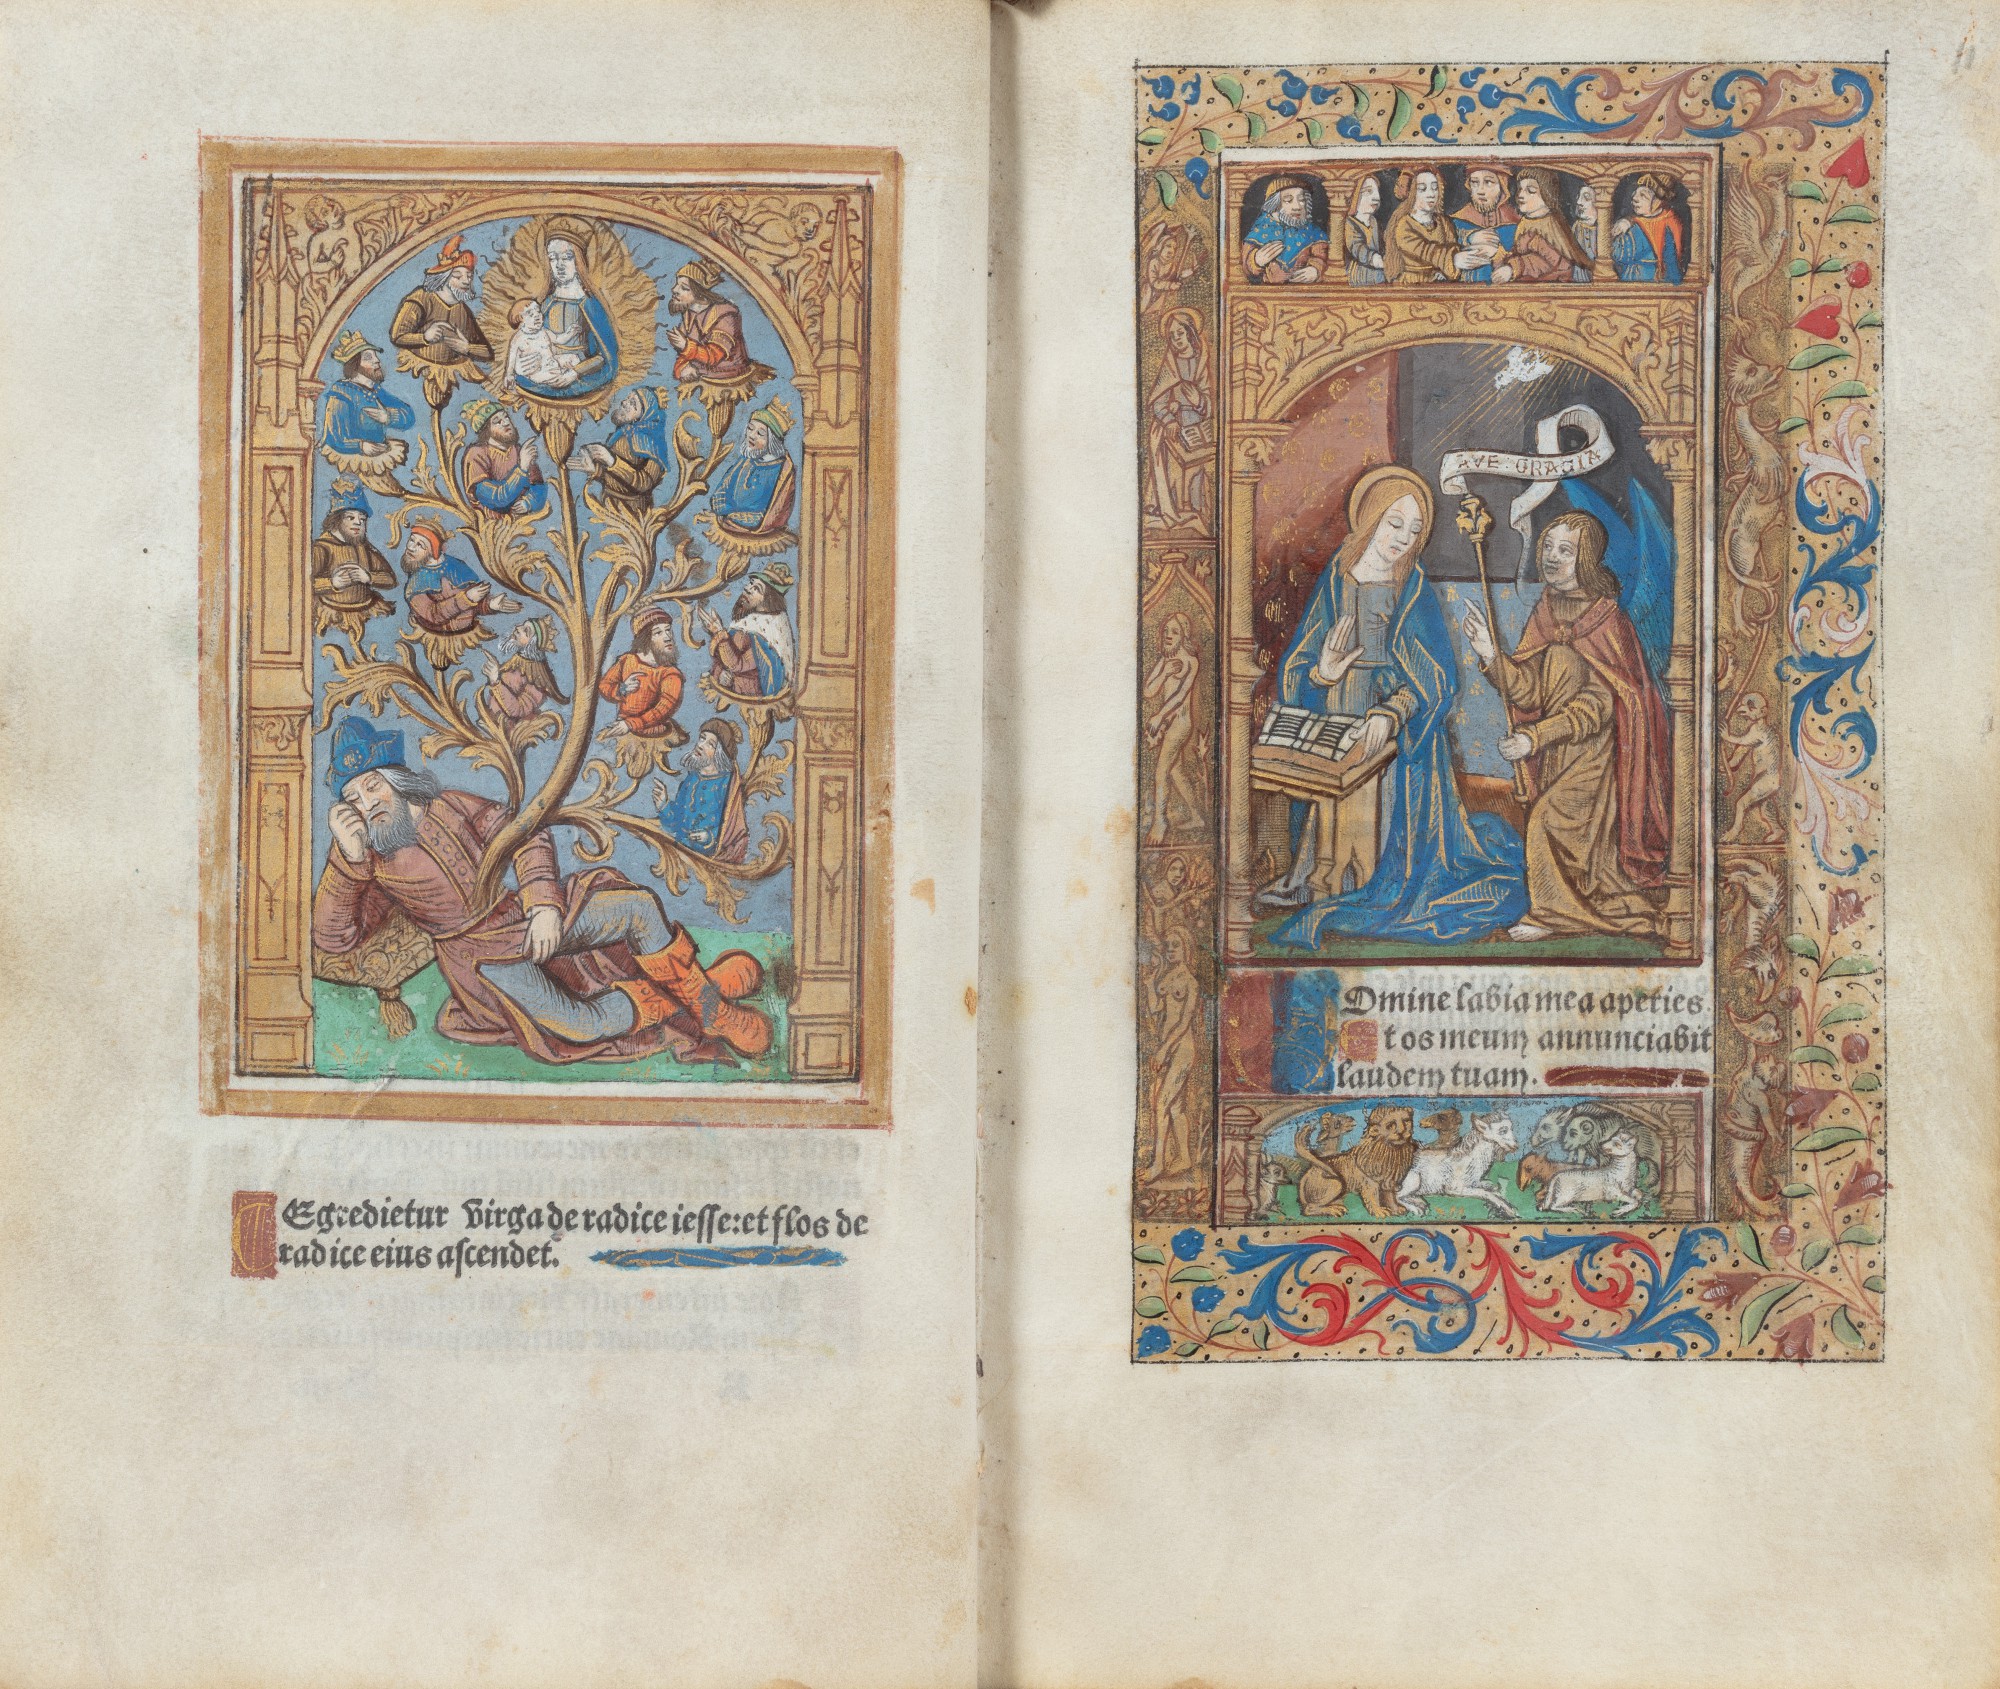 Egredietur virga de radice iesse: et flos de
radice eius ascendet.
AVE GRACIA
Domine labia mea aperies
Et os meum annunciabit
laudem tuam.